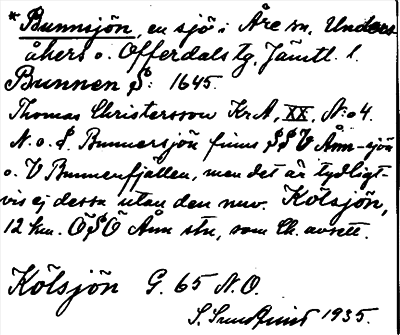 * Bunnsjön, en sjö i Åre sn, Unders-
åkers o. Offerdals tg, Jämtl. l.
Bunnen S: 1645.
Thomas Christersson Kr A, XX, N:o 4.
N. o. S. Bunnersjön finns SSV Ånn-sjön
o. V Bunnerfjällen, men det är tydligt-
vis ej dessa utan den nuv. Kölsjön,
12 km. ÖSÖ Ånn stn, som Ch. avsett.
Kölsjön G. 65 N.O.
S. Sundquist 1935.